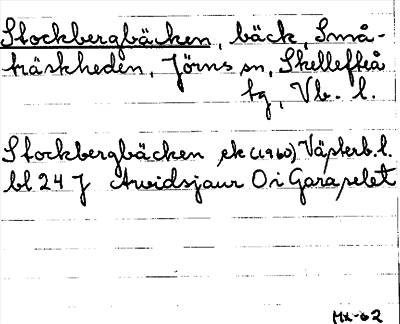 Stockbergbäcken, bäck, Små-
träskheden, Jörns sn, Skellefteå
tg, Vb. l.
Stockbergbäcken ek (1960) Västerb. l.
bl 24 J Arvidsjaur O i Garaselet
Mx-62